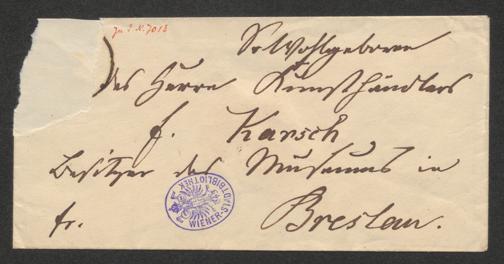 Zu I. N. 7018
Sr Wohlgeboren
des Herrn Kunsthändlers
F. Karsch
Besitzer des Museums in
fr. Breslau.
WIENER-STADTBIBLIOTHEK